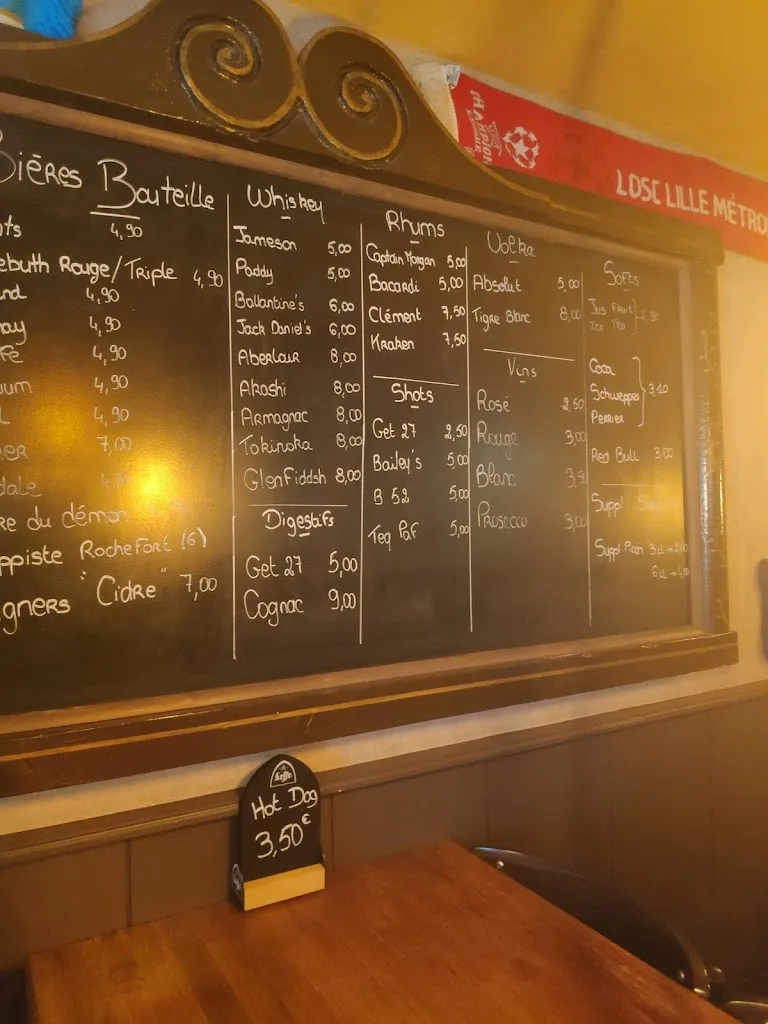 Bières Bouteille
4,90
Rouge/Triple 4,90
4,90
4,90
4,90
4,90
4,90
7,00
du démon
Rochefort (6)
"Cidre" 7,00
Whiskey
Jameson 5,00
Paddy 5,00
Ballantine's 6,00
Jack Daniel's 6,00
Aberlour 8,00
Akashi 8,00
Armagnac 8,00
Tokinoka 8,00
Glenfiddsh 8,00
Digestifs
Get 27 5,00
Cognac 9,00
Rhums
Captain Morgan 5,00
Bacardi 5,00
Clément 7,50
Kraken 7,50
Shots
Get 27 2,50
Bailey's 5,00
B 52 5,00
Teq Paf 5,00
Vodka
Absolut 5,00
Tigre Blanc 8,00
Vins
Rosé 2,50
Rouge 3,00
Blanc 3,50
Prosecco 3,00
Softs
Jus Fruit
Ice Tea 2,90
Coca
Schweppes 3,10
Perrier
Red Bull 3.00
Suppl
Suppl Picon 3cl → 2,00
6cl → 4,00
LOSC LILLE MÉTRO
CHAMPION
Leffe
Hot Dog
3,50€